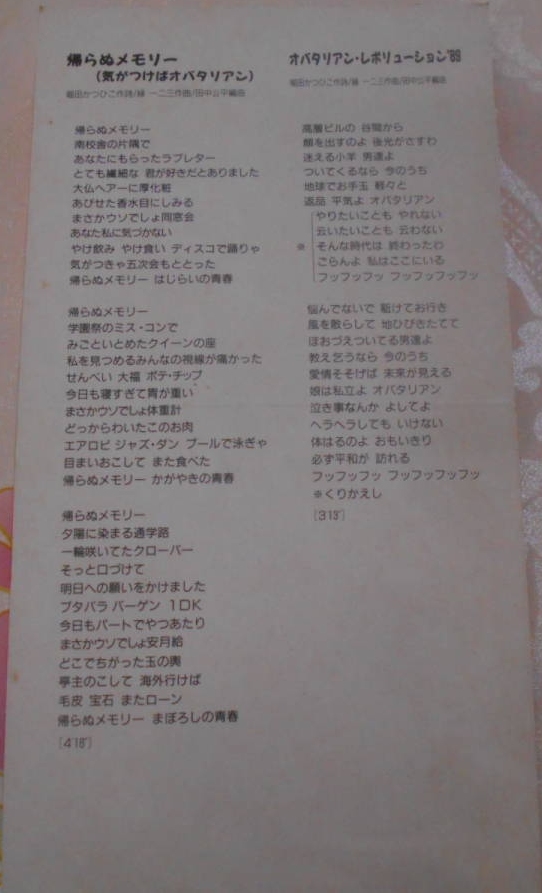 帰らぬメモリー
(気がつけばオバタリアン)
堀田かつひこ作詩/緑 一二三作曲/田中公平編曲
帰らぬメモリー
南校舎の片隅で
あなたにもらったラブレター
とても繊細な 君が好きだとありました
大仏ヘアーに厚化粧
あびせた香水目にしみる
まさかウソでしょ同窓会
あなた私に気づかない
やけ飲み やけ食い ディスコで踊りゃ
気がつきゃ五次会もととった
帰らぬメモリー はじらいの青春
帰らぬメモリー
学園祭のミス・コンで
みごといとめたクイーンの座
私を見つめるみんなの視線が痛かった
せんべい 大福 ポテ・チップ
今日も寝すぎて胃が重い
まさかウソでしょ体重計
どっからわいたこのお肉
エアロビ ジャズ・ダン プールで泳ぎゃ
目まいおこして また食べた
帰らぬメモリー かがやきの青春
帰らぬメモリー
夕陽に染まる通学路
一輪咲いてたクローバー
そっと口づけて
明日への願いをかけました
ブタバラ バーゲン 1DK
今日もパートでやつあたり
まさかウソでしょ安月給
どこでちがった玉の輿
亭主のこして 海外行けば
毛皮 宝石 またローン
帰らぬメモリー まぼろしの青春
(4'18")
オバタリアン・レボリューション'89
堀田かつひこ作詩/緑 一二三作曲/田中公平編曲
高層ビルの 谷間から
顔を出すのよ 後光がさすわ
迷える小羊 男達よ
ついてくるなら 今のうち
地球でお手玉 軽々と
返品 平気よ オバタリアン
やりたいことも やれない
云いたいことも 云わない
※ そんな時代は 終わったわ
ごらんよ 私はここにいる
フッフッフッ フッフッフッフッ
悩んでないで 駆けてお行き
風を散らして 地ひびきたてて
ほおづえついてる男達よ
教え乞うなら 今のうち
愛情そそげば 未来が見える
娘は私立よ オバタリアン
泣き事なんか よしてよ
ヘラヘラしても いけない
体はるのよ おもいきり
必ず平和が 訪れる
フッフッフッ フッフッフッフッ
※くりかえし
(3'13")